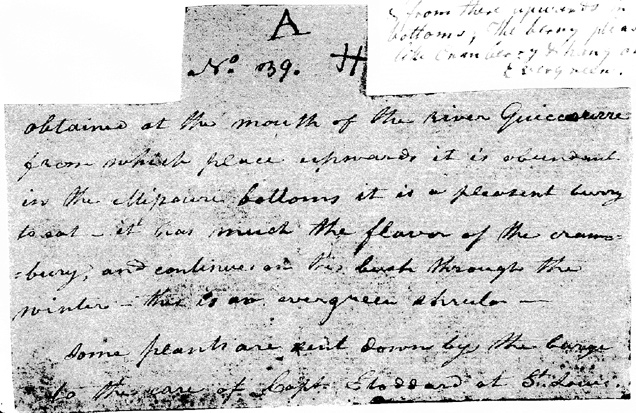 A
No. 39. H
from there upwards in
bottoms, the berry pleas
like Cranberry & hang on
Evergreen.
obtained at the mouth of the river Quiccourre
from which place upwards it is abundant
in the Missouri bottoms it is a pleasent berry
to eat - it has much the flavor of the cran=
=bury, and continues on the bush through the
winter - this is an evergreen shrub -
some plants are sent down by the barge
to the care of Capt. Stoddard at St. Louis.